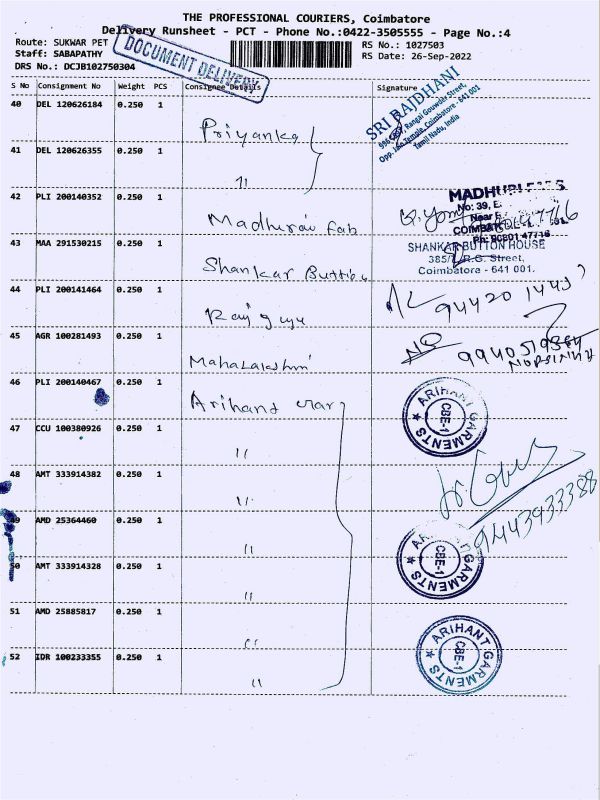 THE PROFESSIONAL COURIERS, Coimbatore
Delivery Runsheet - PCT - Phone No.:0422-3505555 - Page No.:4
Route: SUKWAR PET
Staff: SABAPATHY
DRS No.: DCJB102750304
DOCUMENT DELIVERY
RS No.: 1027503
RS Date: 26-Sep-2022
S No Consignment No Weight PCS Consignee Details Signature
40 DEL 120626184 0.250 1 Priyanka
SRI RAJDHANI
Rangai Gowder Street,
Temple, Coimbatore - 641 001
Tamil Nadu, India
41 DEL 120626355 0.250 1 "
42 PLI 200140352 0.250 1 Madhurai Fab
No: 39,
Near
43 MAA 291530215 0.250 1 Shankar
SHANKAR BUTTON HOUSE
R.G. Street,
Coimbatore - 641 001.
44 PLI 200141464 0.250 1
45 AGR 100281493 0.250 1 Mahalakshmi
46 PLI 200140467 0.250 1 Arihand
ARIHANT GARMENTS CBE-1
47 CCU 100380926 0.250 1 "
48 AMT 333914382 0.250 1 "
9443933388
49 AMD 25364460 0.250 1 "
ARIHANT GARMENTS CBE-1
50 AMT 333914328 0.250 1 "
51 AMD 25885817 0.250 1 "
52 IDR 100233355 0.250 1 "
ARIHANT GARMENTS CBE-1